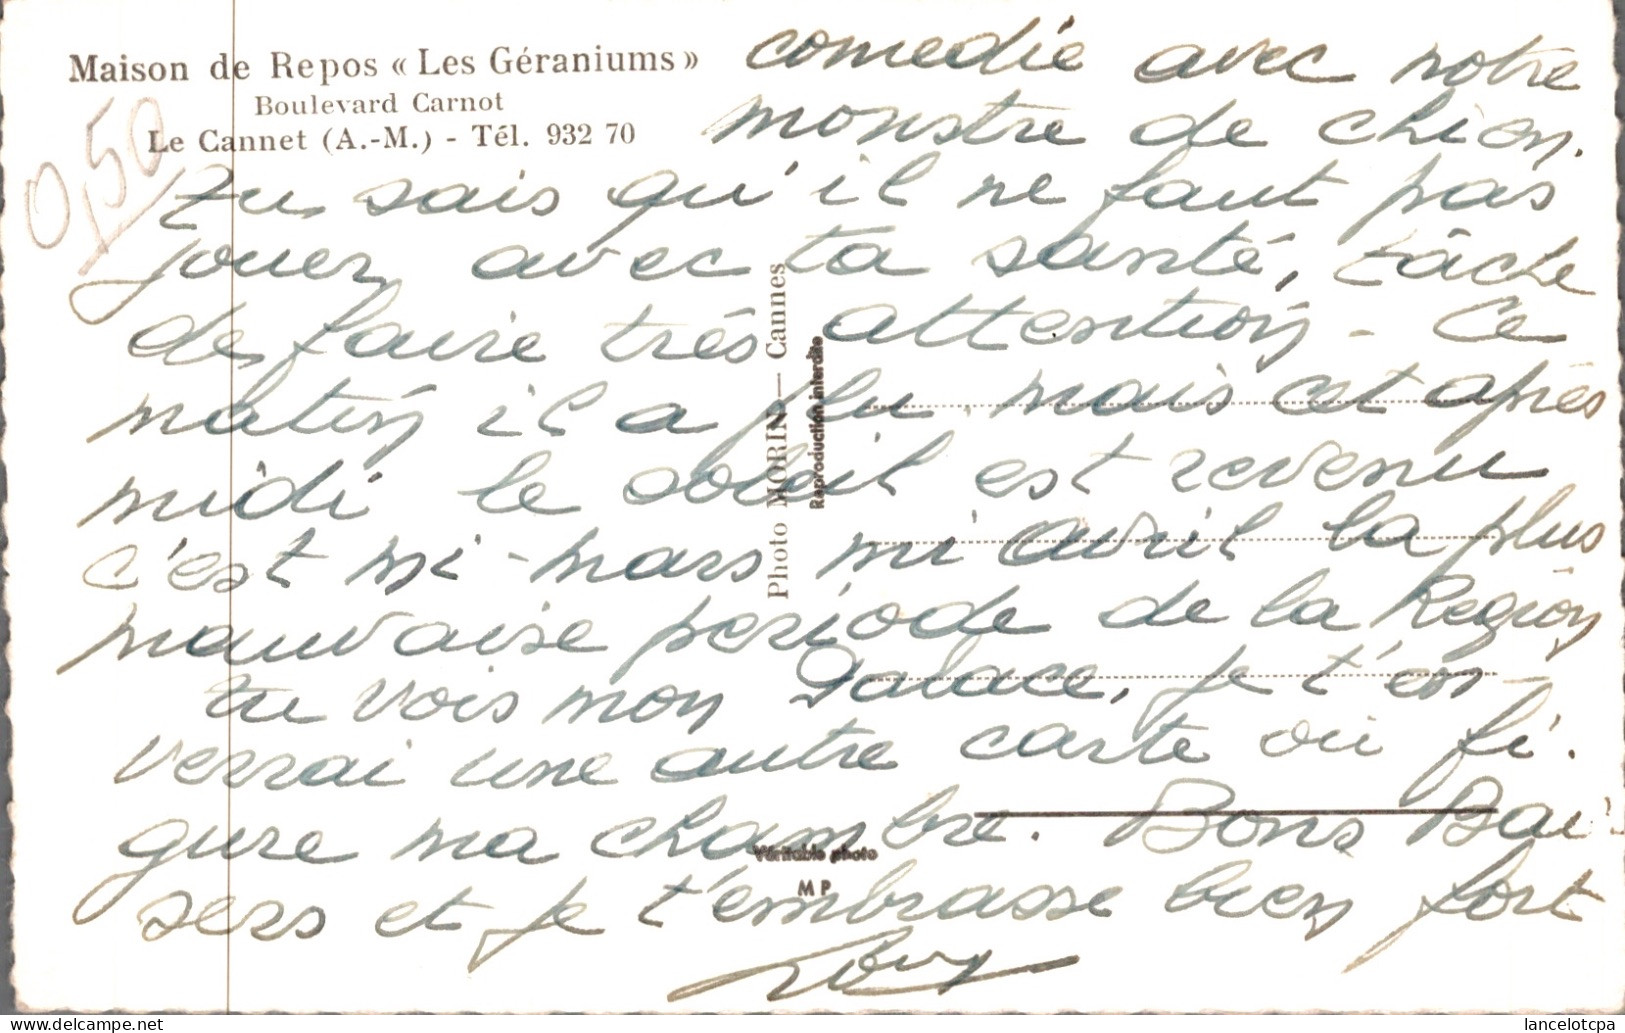 Maison de Repos « Les Géraniums »
Boulevard Carnot
Le Cannet (A.-M.) - Tél. 932 70
0,50
comedie avec notre
monstre de chien.
tu sais qu'il ne faut pas
jouer avec ta santé, tâche
de faire très attention - Ce
matin il a plu, mais cet après
midi le soleil est revenu
c'est mi-mars mi avril la plus
mauvaise periode de la Region
tu vois mon Palace, je t'en-
verrai une autre carte où fi.
gure ma chambre. Bons Bai
sers et je t'embrasse bien fort
Photo MORIN — Cannes
Reproduction interdite
Véritable photo
M P
lancelotcpa